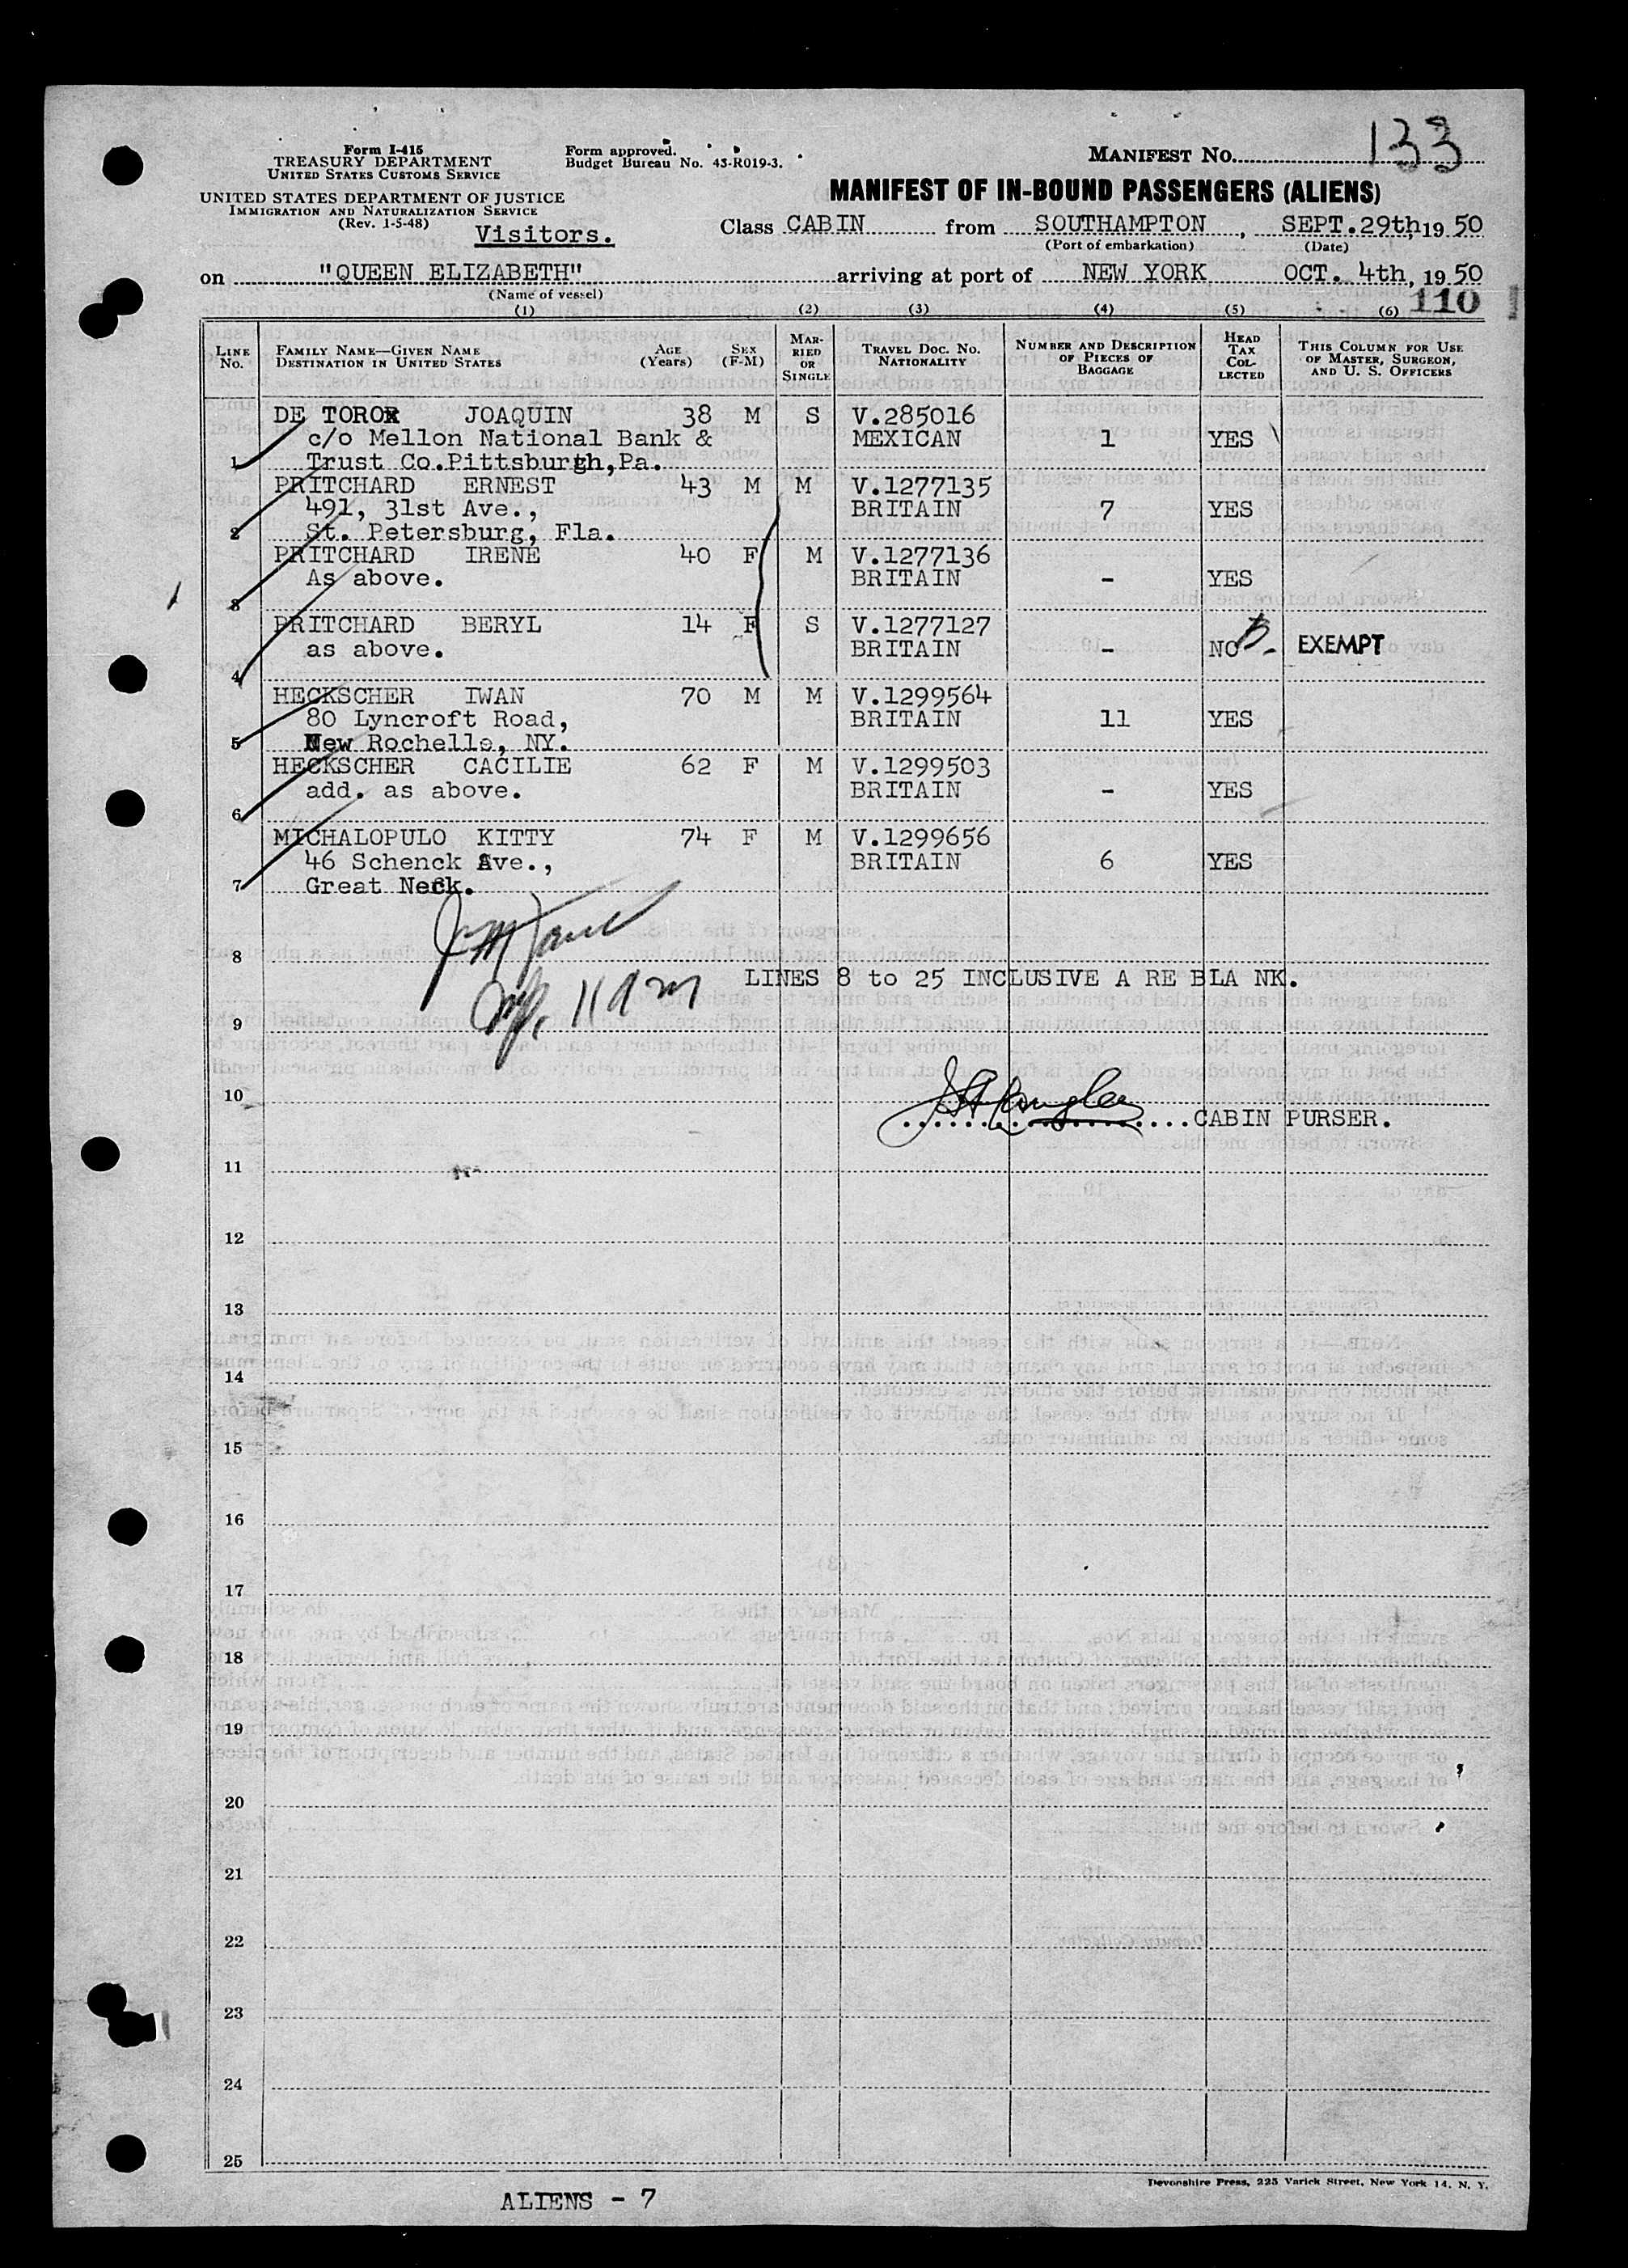 133
Form I-415
TREASURY DEPARTMENT
UNITED STATES CUSTOMS SERVICE
Form approved.
Budget Bureau No. 43-R019-3.
MANIFEST NO.
UNITED STATES DEPARTMENT OF JUSTICE
IMMIGRATION AND NATURALIZATION SERVICE
(Rev. 1-5-48)
MANIFEST OF IN-BOUND PASSENGERS (ALIENS)
Visitors.
Class CABIN from SOUTHAMPTON, SEPT.29th, 1950
(Port of embarkation) (Date)
on "QUEEN ELIZABETH" arriving at port of NEW YORK OCT. 4th, 1950
(Name of vessel)
110
(1) (2) (3) (4) (5) (6)
LINE NO. FAMILY NAME—GIVEN NAME DESTINATION IN UNITED STATES AGE (Years) SEX (F-M) MARRIED OR SINGLE TRAVEL DOC. NO. NATIONALITY NUMBER AND DESCRIPTION OF PIECES OF BAGGAGE HEAD TAX COLLECTED THIS COLUMN FOR USE OF MASTER, SURGEON, AND U. S. OFFICERS
DE TORO JOAQUIN 38 M S V.285016
c/o Mellon National Bank & MEXICAN 1 YES
1 Trust Co.Pittsburgh,Pa.
PRITCHARD ERNEST 43 M M V.1277135
491, 31st Ave., BRITAIN 7 YES
2 St. Petersburg, Fla.
PRITCHARD IRENE 40 F M V.1277136
As above. BRITAIN - YES
3
PRITCHARD BERYL 14 F S V.1277127
as above. BRITAIN - NO EXEMPT
4
HECKSCHER IWAN 70 M M V.1299564
80 Lyncroft Road, BRITAIN 11 YES
5 New Rochelle, NY.
HECKSCHER CACILIE 62 F M V.1299503
add. as above. BRITAIN - YES
6
MICHALOPULO KITTY 74 F M V.1299656
46 Schenck Ave., BRITAIN 6 YES
7 Great Neck.
8
LINES 8 to 25 INCLUSIVE A RE BLA NK.
9
10
CABIN PURSER.
11
12
13
14
15
16
17
18
19
20
21
22
23
24
25
Devonshire Press, 225 Varick Street, New York 14, N. Y.
ALIENS - 7